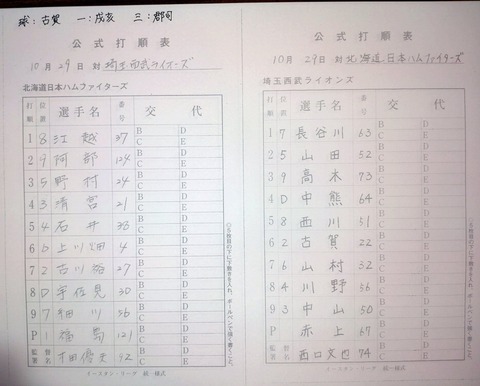 球:古賀 一:戌亥 三:郡司
公式打順表
10月29日対埼玉西武ライオンズ
北海道日本ハムファイターズ
打順 位置 選手名 番号 交代
1 8 江越 37 B D C E
2 9 阿部 124 B D C E
3 5 野村 24 B D C E
4 3 清宮 21 B D C E
5 4 石井 38 B D C E
6 6 上川畑 4 B D C E
7 2 古川裕 27 B D C E
8 D 宇佐見 30 B D C E
9 7 細川 56 B D C E
P 1 福島 121 B D C E
監督署名 木田優夫 92
◎5枚目の下に下敷きを入れ、ボールペンで強く書くこと。
イースタン・リーグ 統一様式
公式打順表
10月29日対北海道日本ハムファイターズ
埼玉西武ライオンズ
打順 位置 選手名 番号 交代
1 7 長谷川 63 B D C E
2 5 山田 52 B D C E
3 9 高木 73 B D C E
4 D 中熊 64 B D C E
5 8 西川 51 B D C E
6 2 古賀 22 B D C E
7 6 山村 32 B D C E
8 4 川野 56 B D C E
9 3 中山 50 B D C E
P 赤上 67 B D C E
監督署名 西口文也 74
◎5枚目の下に下敷きを入れ、ボールペンで強く書くこと。
イースタン・リーグ 統一様式